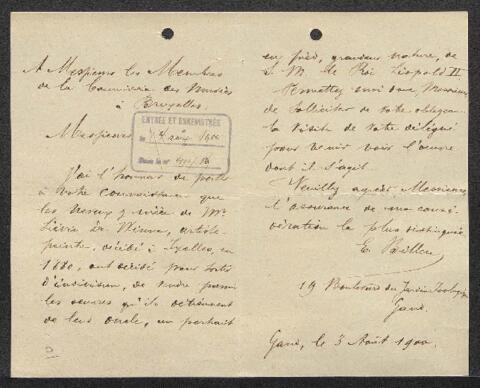 A Messieurs les Membres
de la Commission des Musées
à Bruxelles.
ENTRÉE ET ENREGISTRÉE
le 4 août 1900
Sous le n°
Messieurs
J'ai l'honneur de porter
à votre connaissance que
les neveux & nièce de Mr
Liévin De Winne, artiste-
peintre, décédé à Ixelles, en
1880, ont décidé pour sortir
d'indivision, de vendre parmi
les œuvres qu'ils détiennent
de leur oncle, un portrait
en pied, grandeur nature, de
S. M. le Roi Léopold II
Permettez moi donc, Messieurs
de solliciter de votre obligeance
la visite de votre délégué
pour venir voir l'œuvre
dont il s'agit.
Veuillez agréer Messieurs,
l'assurance de ma considération
la plus distinguée
E.
19 Boulevard du Jardin Zoologique
Gand.
Gand, le 3 Août 1900